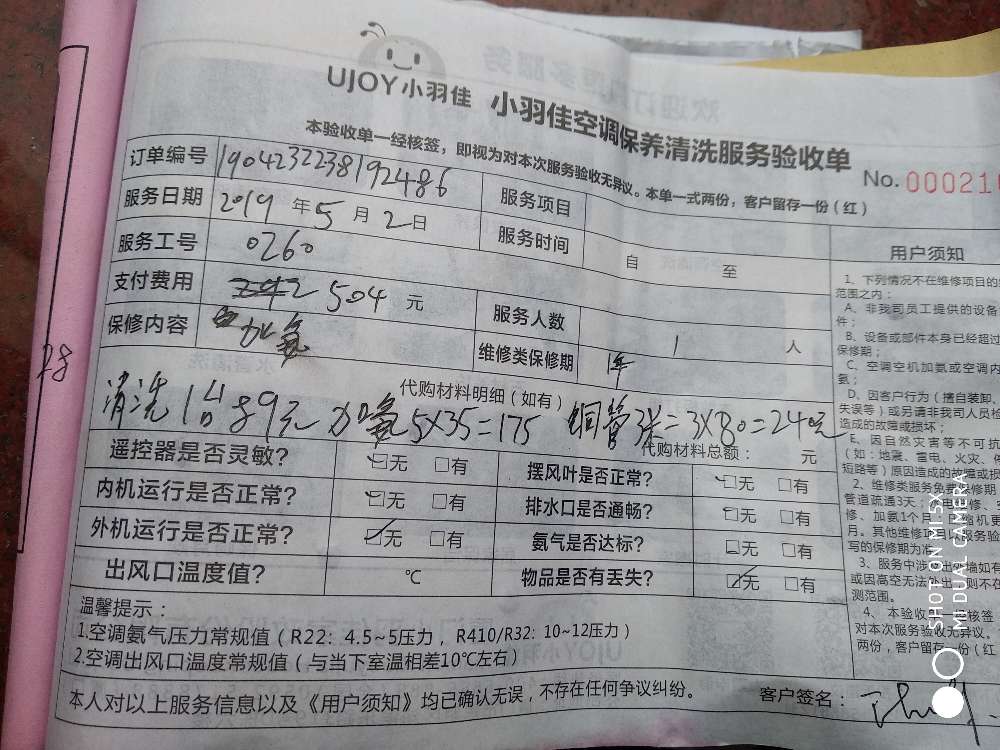 UJOY小羽佳 小羽佳空调保养清洗服务验收单
本验收单一经核签，即视为对本次服务验收无异议。本单一式两份，客户留存一份（红）
No. 000210
订单编号 1904232238192486 服务项目
服务日期 2019 年 5 月 2 日 服务时间 自 至
服务工号 0260
支付费用 504 元 服务人数 1 人
保修内容 加氨 维修类保修期 1年
代购材料明细（如有）
清洗1台89元 加氨5X35=175 铜管3米=3X80=240元
代购材料总额： 元
遥控器是否灵敏？ 无 有 摆风叶是否正常？ 无 有
内机运行是否正常？ 无 有 排水口是否通畅？ 无 有
外机运行是否正常？ 无 有 氨气是否达标？ 无 有
出风口温度值？ ℃ 物品是否有丢失？ 无 有
温馨提示：
1.空调氨气压力常规值（R22：4.5~5压力，R410/R32：10~12压力）
2.空调出风口温度常规值（与当下室温相差10℃左右）
本人对以上服务信息以及《用户须知》均已确认无误，不存在任何争议纠纷。 客户签名：
用户须知
1、下列情况不在维修项目的
范围之内：
A、非我司员工提供的设备
件；
B、设备或部件本身已经超过
保修期；
C、空调空机加氨或空调内
氨；
D、因客户行为（擅自装卸、
失误等）或另请非我司人员检
造成的故障或损坏；
E、因自然灾害等不可抗
（如：地震、雷电、火灾、
短路等）原因造成的故障或损
2、维修类服务免费保修期
管道疏通3天；
修、加氨1个月；
月。其他维修项目以服务验
写的保修期为准
3、服务中涉
或因高空无法外出
测范围。
4、本验收单一经核签
对本次服务验收无异议。
两份，客户留存一份（红
28
SHOT ON MI 5X
MI DUAL CAMERA